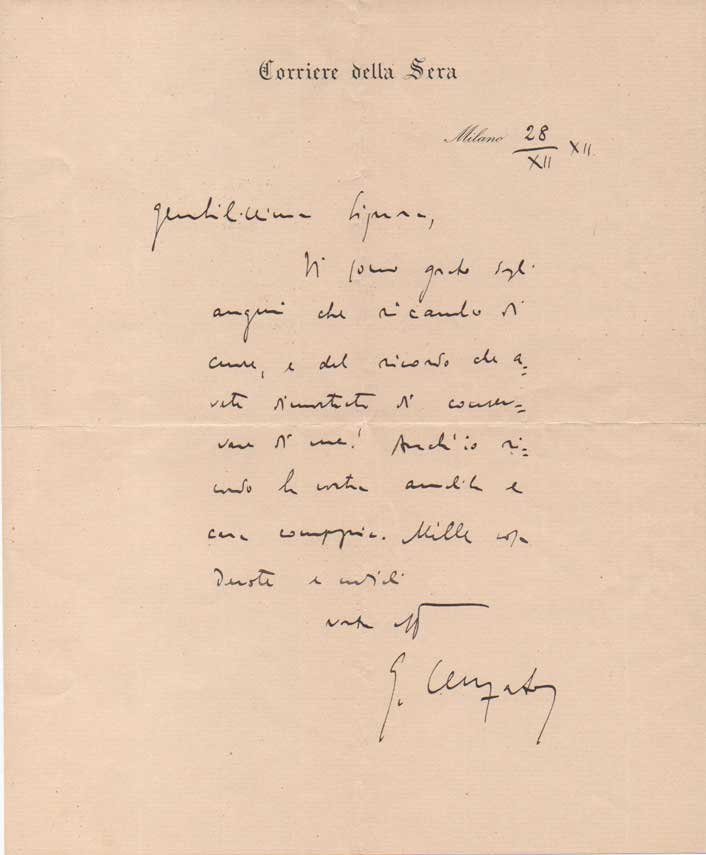 Corriere della Sera
Milano 28/XII XII
Gentilissima Signora,
Vi sono grato degli
auguri che ricambio di
cuore, e del ricordo che a=
vete dimostrato di conser=
vare di me! Anch'io ri=
cordo la vostra amabile e
cara compagnia. Mille cose
devote e cordiali
vostro aff
G. Cenzato